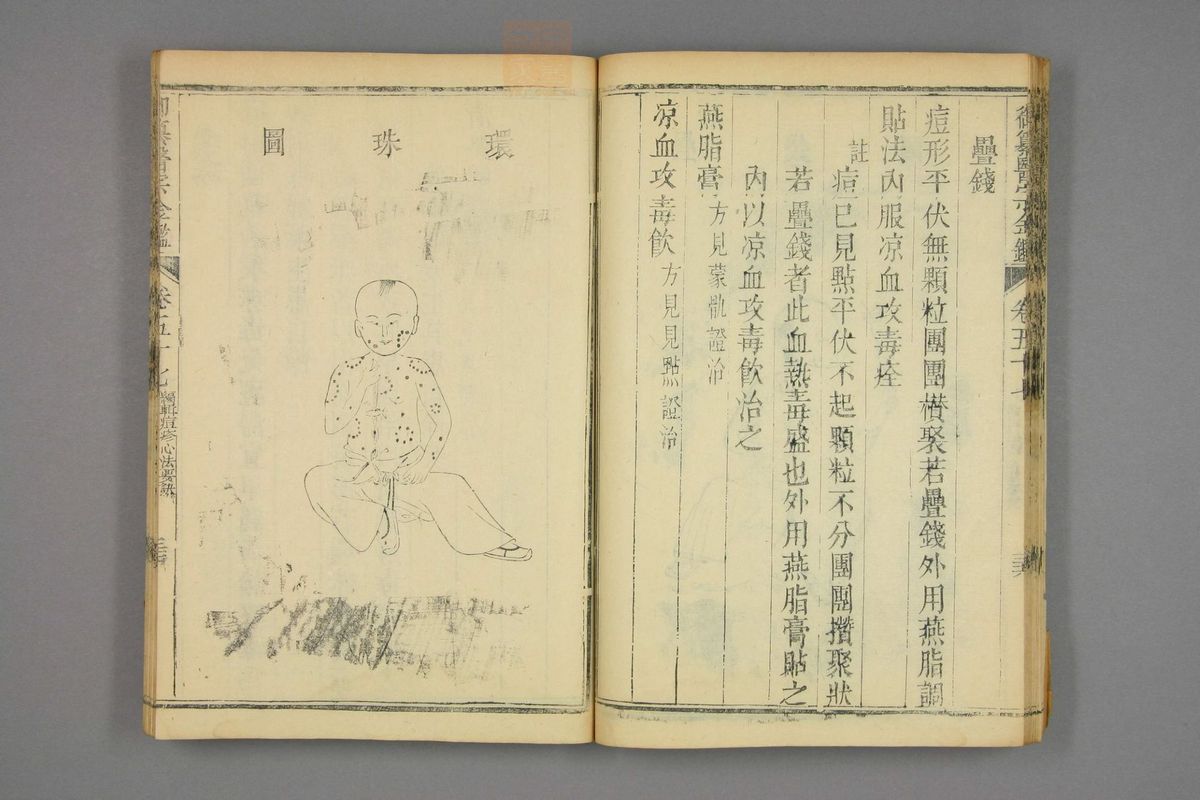 御纂醫宗金鑑 卷五十七
疊錢
痘形平伏無顆粒團團攅聚若疊錢外用燕脂調
貼法內服凉血攻毒痊
註痘已見點平伏不起顆粒不分團團攢聚狀
若疊錢者此血熱毒盛也外用燕脂膏貼之
內以凉血攻毒飮治之
燕脂膏方見蒙骩證治
凉血攻毒飮方見見點證治
環珠圖
卷五十七 編輯痘疹心法要訣